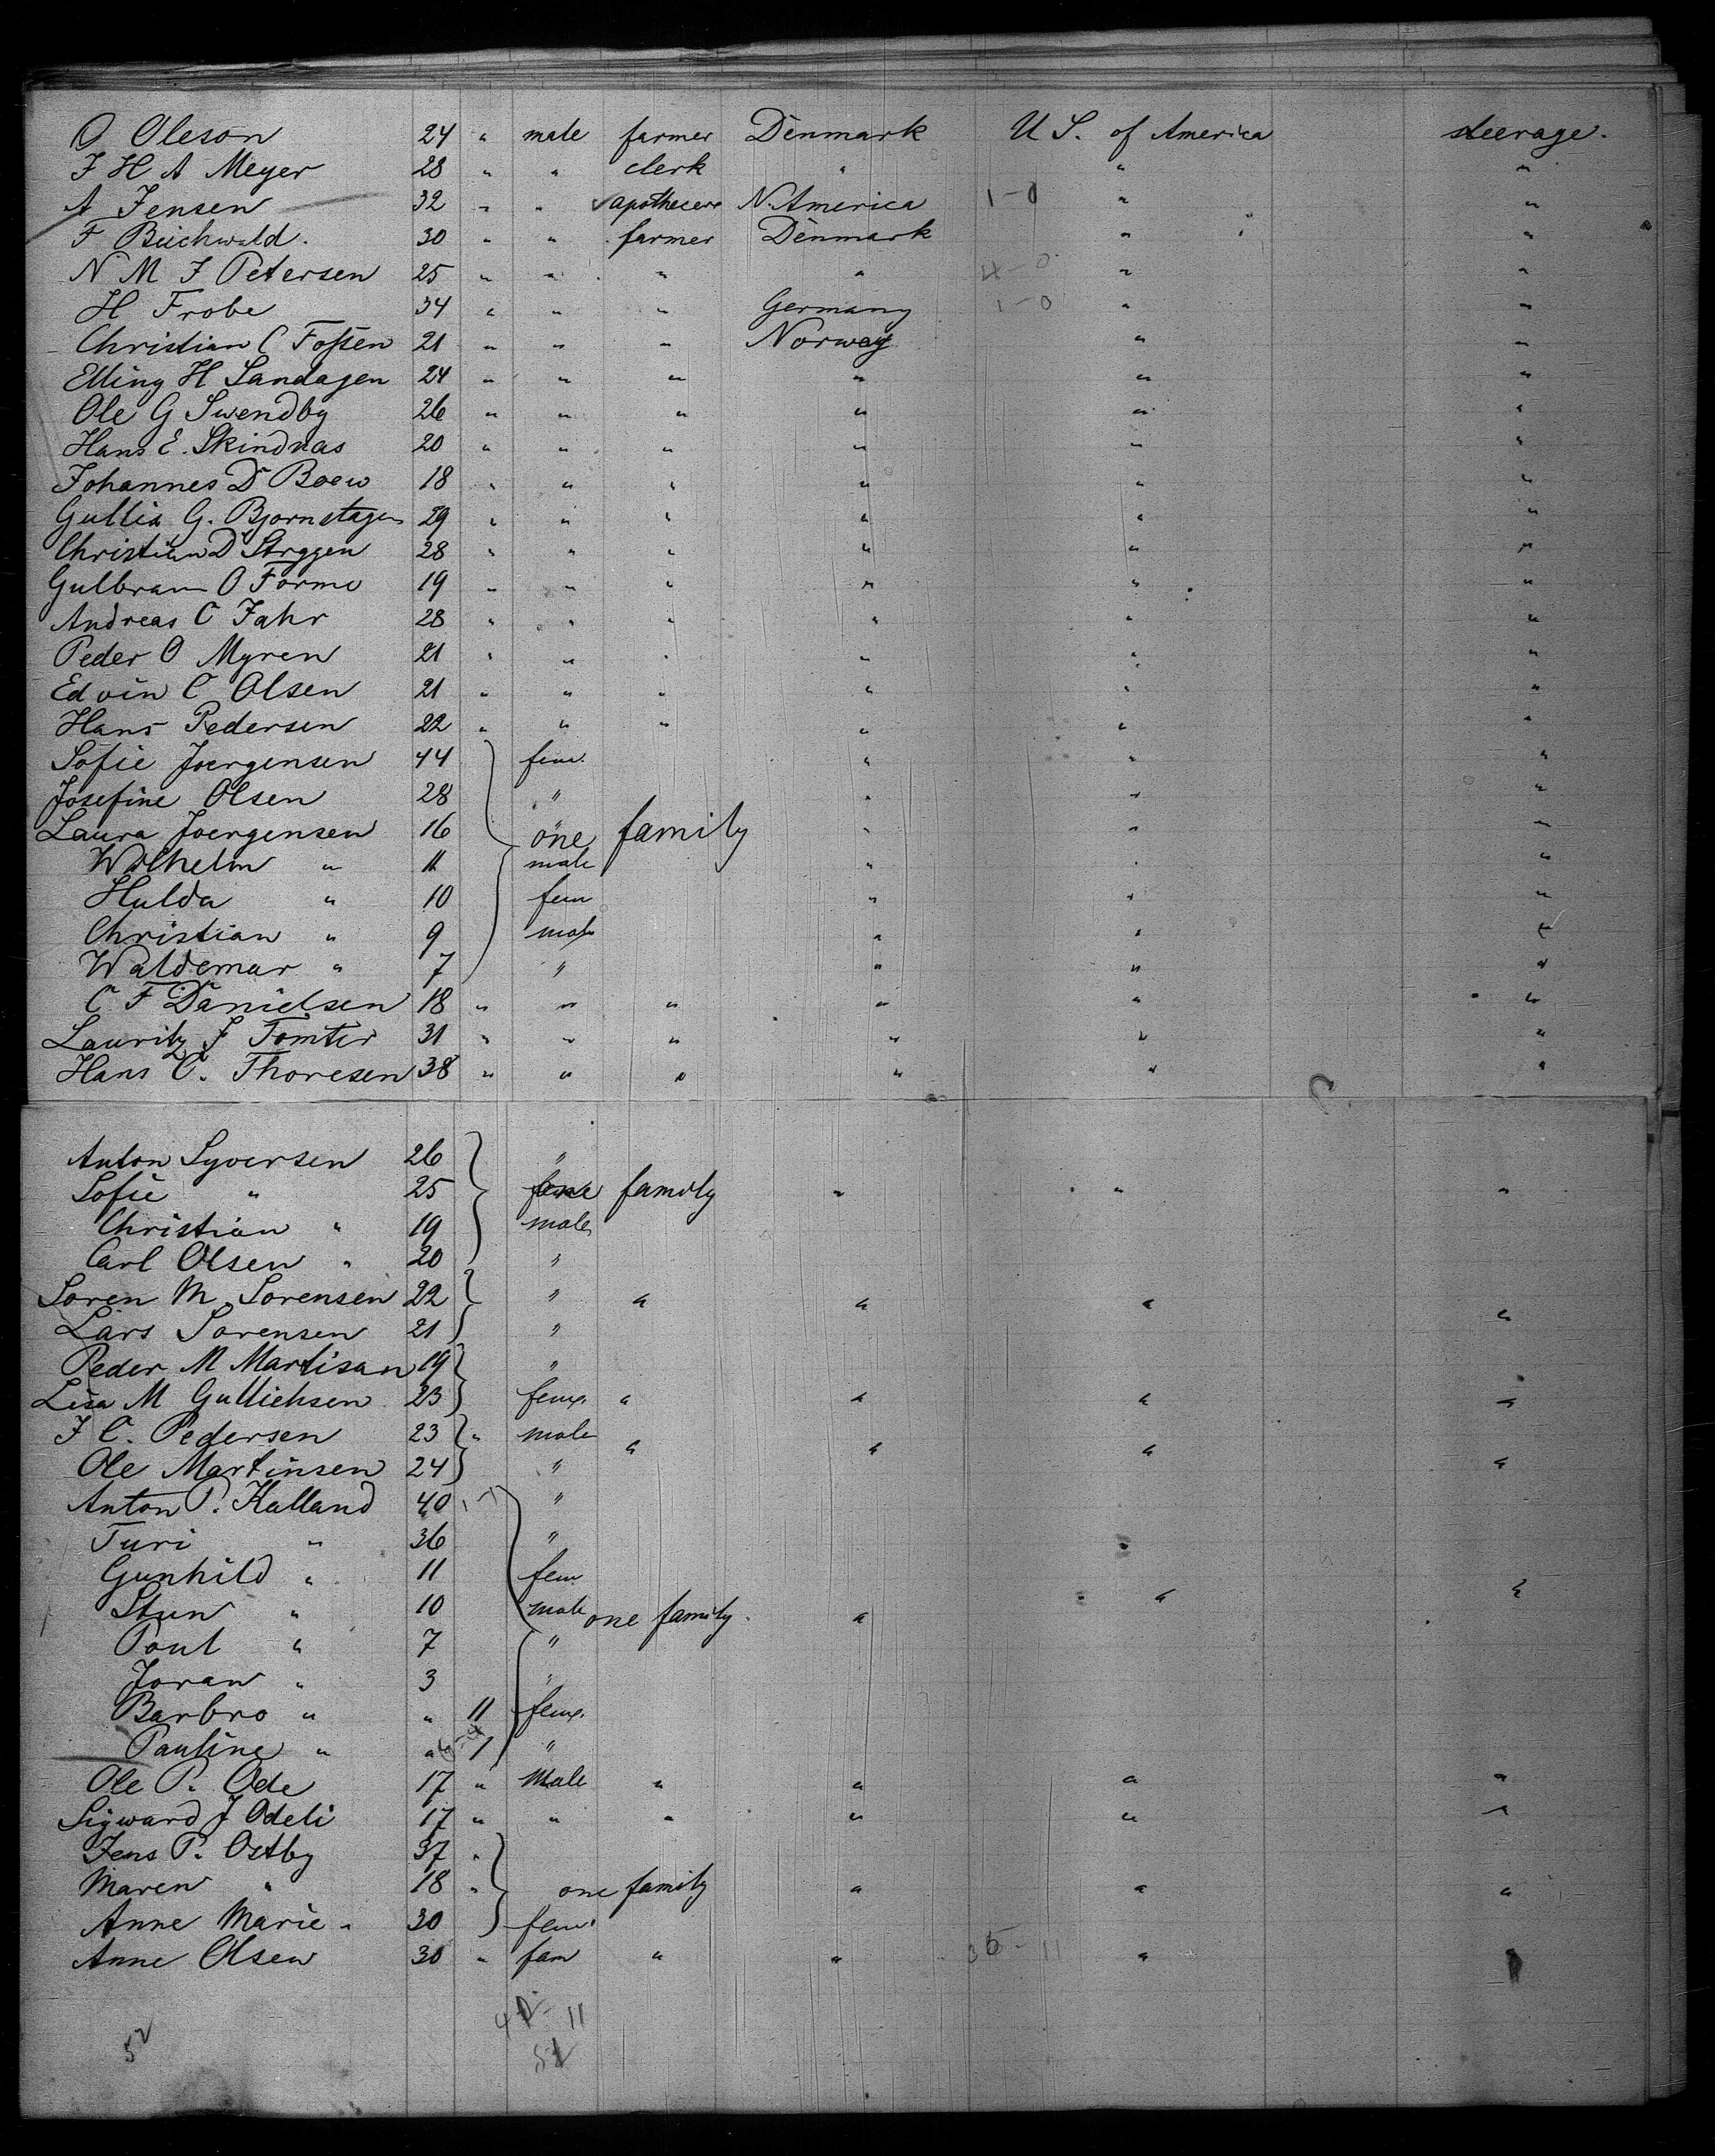 O Oleson 24 " male farmer Denmark U S. of America steerage.
J H A Meyer 28 " " clerk " " "
A Jensen 32 " " apothecere N. America 1-0 " "
F Buchwald. 30 " " farmer Denmark " "
N M J Petersen 25 " " " " 4-0 " "
H Frobe 34 " " " Germany 1-0 " "
Christian C Foſsen 21 " " " Norway " "
Elling H Sandagen 24 " " " " " "
Ole G Swendby 26 " " " " " "
Hans E. Skindnas 20 " " " " " "
Johannes D Boew 18 " " " " " "
Gullix G. Bjornstagen 29 " " " " " "
Christian D Stryggen 28 " " " " " "
Gulbran O Formo 19 " " " " " "
Andreas C Jahr 28 " " " " " "
Peder O Myren 21 " " " " " "
Edvin C Olsen 21 " " " " " "
Hans Pedersen 22 " " " " " "
Sofie Joergensen 44 fem. " " "
Josefine Olsen 28 " " " "
Laura Joergensen 16 " one family " " "
Wilhelm " 11 male " " "
Hulda " 10 fem " " "
Christian " 9 male " " "
Waldemar " 7 " " " "
C F Danielsen 18 " " " " " "
Lauritz J Tomter 31 " " " " " "
Hans C. Thoresen 38 " " " " " "
Anton Syversen 26 "
Sofie " 25 one family " " "
Christian " 19 male
Carl Olsen " 20 "
Soren M Sorensen 22 " " " " "
Lars Sorensen 21 "
Peder M Martisan 19 "
Lisa M Gulliehsen 23 fem. " " " "
J C. Pedersen 23 " male " " " "
Ole Martinsen 24 "
Anton P. Kalland 40 "
Turi " 36 "
Gunhild " 11 fem
Stun " 10 male one family " " "
Poul " 7 "
Joran " 3 "
Barbro " " 11 fem.
Pauline " " 1 "
Ole P. Ode 17 " Male " " " "
Sigward J Odeli 17 " " " " " "
Jens P. Ostby 37 "
Maren " 18 " one family " " "
Anne Marie " 30 fem.
Anne Olsen 30 " fam " " 36-11 " "
11
52
52